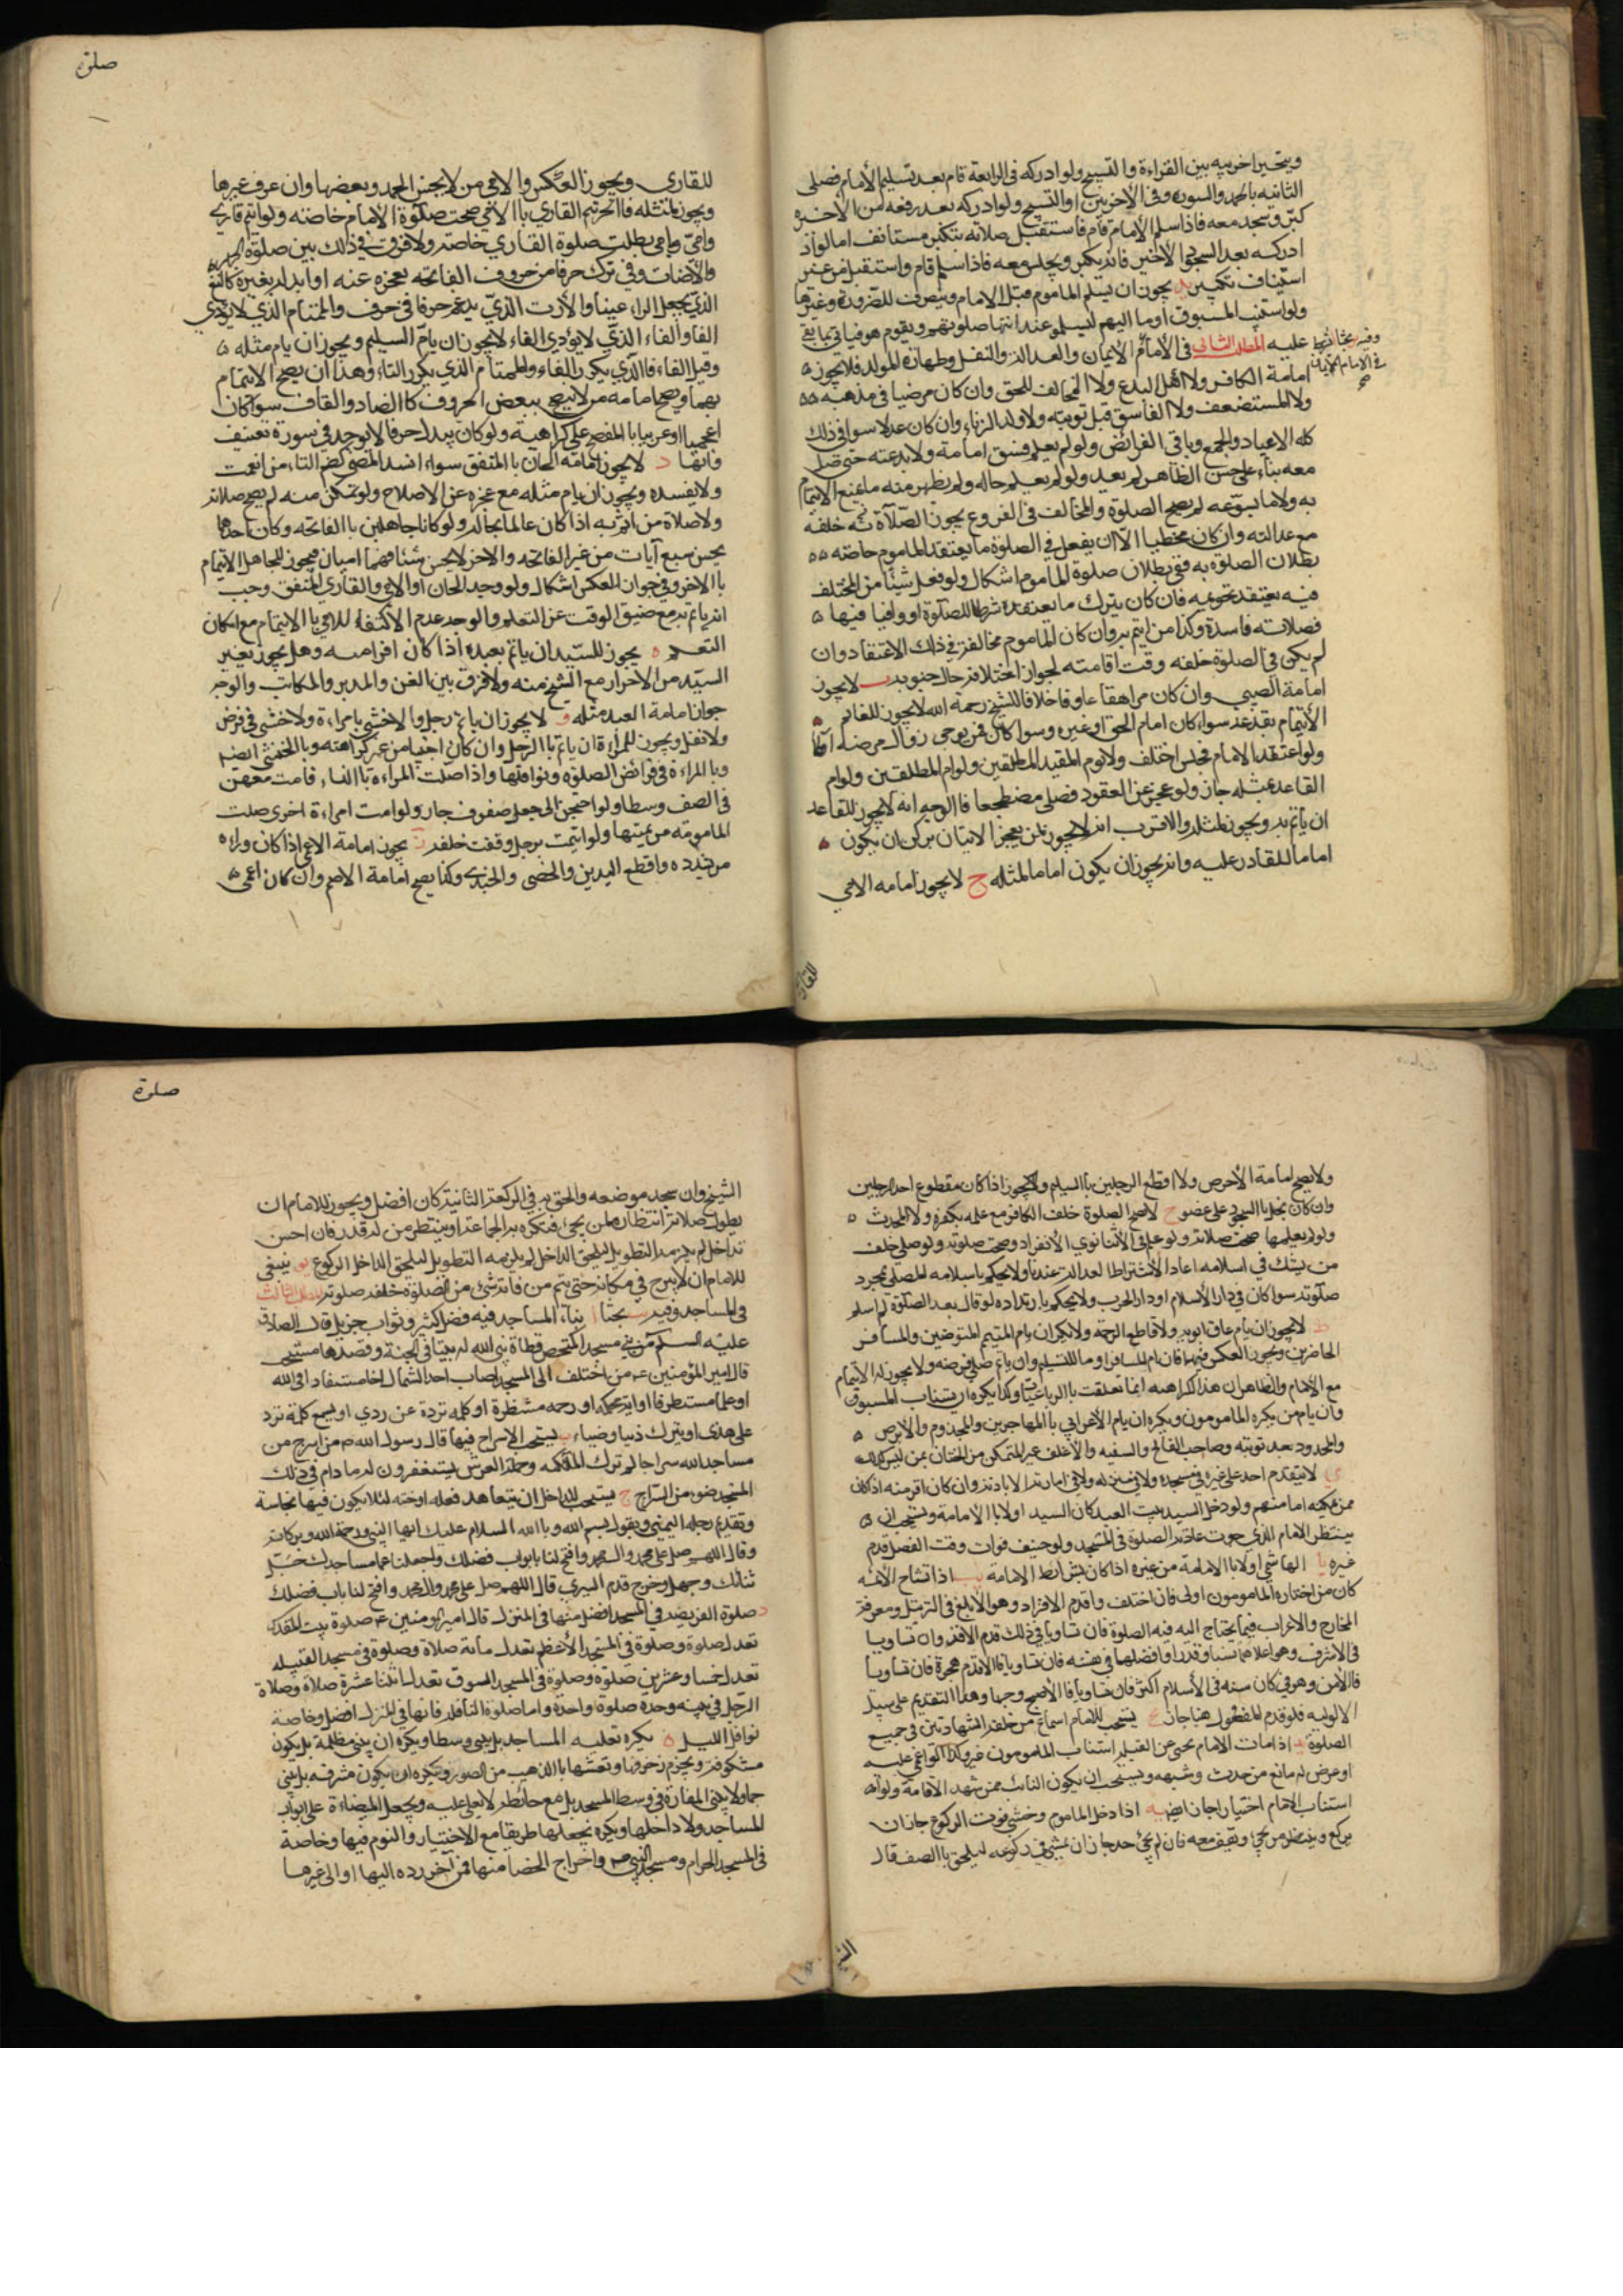 ويتخير اخريه بين القراءة والتسبيح ولو ادركه في الرابعة قام بعد تسليم الامام فصلى
الثانيه بالحمد والسوره وفي الاخريتين او التسبيح ولو ادركه بعد رفعه من الاخيره
كبر وسجد معه فاذا سلم الامام قام فاستقبل صلاته بتكبير مستانف اما لو اذ
ادركه بعد السجود الاخير فانه يكبر ويجلس معه فاذا سلم قام واستقبل من غير
استيناف تكبير يد يجوز ان يسلم الماموم قبل الامام وينصرف للضرورة وغيرها
ولو استنيب المسبوق اوما اليهم ليسلموا عند انتها صلوتهم ويقوم هو فياتي بما بقي
عليه المطلب الثاني في الامام الايمان والعدالة والنفل وطهارة المولد فلا يجوز
وفيه بحثا يشترط
في الامام الايمان
صح
امامة الكافر ولا اهل البدع ولا المخالف للحق وان كان مرضيا في مذهبه
ولا المستضعف ولا الفاسق قبل توبته ولا ولد الزناء وان كان عدلا سوا في ذلك
كله الاعياد والجمع وباقي الفرائض ولو لم يعلم فسق امامه ولا بدعته حتى صلى
معه بناء على حسن الظاهر لم يعد ولو لم يعلم حاله ولم يظهر منه ما يمنع الايتمام
به ولا ما يسوغه لم يصح الصلوة والمخالف في الفروع يجوز الصلاة خلفه
مع عدالته وان كان مخطيا الا ان يفعل في الصلوة ما يعتقد الماموم خاصة
بطلان الصلوة به ففي بطلان صلوة الماموم اشكال ولو فعل شيئا من المختلف
فيه يعتقد تحريمه فان كان بترك ما يعتقده شرطا للصلوة او وافيا فيها
فصلاته فاسدة وكذا من ايتم به وان كان الماموم مخالفة في ذلك الاعتقاد وان
لم يكن في الصلوة خلفه وقت اقامته لجواز اختلافه حال جنونه ب لا يجوز
امامة الصبي وان كان مراهقا عاقلا خلافا للشيخ رحمة الله لا يجوز للقائم
الايتمام بقاعد سوا كان امام الحي او غيره وسوا كان ممن يرجى زوال مرضه ام لا
ولو اعتقد الامام فجلس اختلف ولا يوم المقيد المطلقين ولو ام المطلقين ولو ام
القاعد بمثله جاز ولو عجز عن القعود فصلى مضطجعا فالوجه انه لا يجوز للقاعد
ان ياتم به ويجوز لمثله والاقرب انه لا يجوز لمن يعجز الاتيان بركن ان يكون
اماما للقادر عليه وانه يجوز ان يكون اماما لمثله ج لا يجوز امامه الامي
للقاري
صلوة
للقاري ويجوز العكس والامي من لا يحسن الحمد وبعضها وان عرف غيرها
ويجوز لمثله فان اتم القاري بالامي صحت صلوة الامام خاصة ولو ايتم قارئ
وامي بامي بطلت صلوة القاري خاصة ولا فرق في ذلك بين صلوة الجهرية
والاخفات وفي ترك حرفا من حروف الفاتحة لعجزه عنه او ابدله بغيره كالثغ
الذي يجعل الراء عينا والارت الذي يدغم حرفا في حرف والتمتام الذي لا يودي
الفا والفاء الذي لا يؤدي الفاء لا يجوز ان يام السليم ويجوز ان يام مثله
وقيل الفاء فا الذي يكرر الفاء والتمتام الذي يكرر التاء وهذان يصح الايتمام
بهما ويصح امامه من لا يفصح ببعض الحروف كالصاد والقاف سوا كان
اعجميا او عربيا بالمفصح على كراهية ولو كان يبدل حرفا لا يوجد في سورة بعينها
وانها د لا يجوز امامة اللحان بالمتفق سواء افسد المعنى كضم التاء من انعمت
ولا يفسده ويجوز ان يام مثله مع عجزه عن الاصلاح ولو تمكن منه لم يصح صلاته
ولا صلاة من ائتم به اذا كان عالما بحاله ولو كانا جاهلين بالفاتحه وكان احدهما
يحسن سبع آيات من غير الفاتحه والاخر لا يحسن شيئا فهما اميان فيجوز للجاهل الايتمام
بالاخر وفي جواز العكس اشكال ولو وجد اللحان او الامي والقاري المتفق وجب
ان ياتم به مع ضيق الوقت عن التعلم والوجه عدم الاكتفاء للامي بالايتمام مع امكان
التعلم ه يجوز للسيد ان ياتم بعبده اذا كان اقرا منه وهل يجوز بغير
السيد من الاحرار مع الشيخ منه ولا فرق بين القن والمدبر والمكاتب والوجه
جواز امامة العبد مثله و لا يجوز ان ياتم رجل ولا خنثى بامراءة ولا خنثى في فرض
ولا نفل ويجوز للمراءة ان ياتم بالرجل وان كان اجنبيا من غير كراهته وبالخنثى ايضا
وبالمراءة في فرائض الصلوة ونوافلها واذا صلت المراءة بالنساء قامت معهن
في الصف وسطا ولو احتجن الى جعل صفوف جاز ولو امت امراءة اخرى صلت
المامومة من يمينها ولو ائتمت برجل وقفت خلفه ز يجوز امامة الاعمى اذا كان وراه
من يسدده واقطع اليدين والخصي والجندي وكذا يصح امامة الاصم وان كان اعمى
ولا يصح امامة الاخرص ولا اقطع الرجلين بالسليم ولا يجوز اذا كان مقطوع احد الرجلين
وان كان يخل بالسجود على عضو ح لا يصح الصلوة خلف الكافر مع علمه بكفره ولا المحدث
ولو لم يعلمها صحت صلاته ولو علم في الاثنا نوى الانفراد وصحت صلوته ولو صلى خلف
من يشك في اسلامه اعاد الاشتراط العدالة عندنا ولا يحكم باسلامه المصلي بمجرد
صلوته سوا كان في دار الاسلام او دار الحرب ولا يحكم بارتداده لو قال بعد الصلوة لم اسلم
ط لا يجوز ان يام عاق ابويه ولا قاطع الرحم ولا يكره ان يام المتيمم المتوضين والمسافر
الحاضرين ويجوز العكس فيهما فان ام المسافر اوما للتسليم وان ياتم صلى فرضه ولا يجوز له الايتمام
مع الامام والظاهر ان هذه الكراهيه انما تعلقت بالرباعيات وكذا يكره ان يستناب المسبوق
وان يام من يكره المامومون ويكره ان يام الاعرابي بالمهاجرين والمجذوم والابرص
والمحدود بعد توبته وصاحب الفالج والسفيه والاغلف غير المتمكن من الختان بمن ليس كذلك
ي لا يتقدم احد على غيره في مسجده ولا في منزله ولا في امارته الا باذنه وان كان اقرء منه اذا كان
ممن يمكنه امامتهم ولو دخل السيد بيت العبد كان السيد اولا بالامامة ويستحب ان
ينتظر الامام الذي جرت عادته الصلوة في المسجد ولو خيف فوات وقت الفضل قدم
غيره يا الهاشمي اولا بالامامة من غيره اذا كان بشرائط الامامة يب اذا تشاح الائمه
كان من اختاره المامومون اولى فان اختلف واقدم الاقراء وهو الابلغ في الترتيل ومعرفة
المخارج والاعراب فيما يحتاج اليه فيه الصلوة فان تساويا في ذلك قدم الافقه وان تساويا
في الاشرف وهو اعلاهما نسبا وقدرا وافضلهما في نفسه فان تساويا فالاقدم هجرة فان تساويا
فالاسن وهو في كان سنه في الاسلام اكثر فان تساويا فالاصبح وجها وهذا التقديم على سبيل
الاولويه فلو قدم المفضول هنا جاز يج يستحب للامام اسماع من خلفه الشهادتين في جميع
الصلوة يد اذا مات الامام نحي عن القبلة استناب المامومون غيره وكذا لو اغمي عليه
او عرض له مانع من حدث وشبهه ويستحب ان يكون النائب ممن شهد الاقامة ولو اراد
استناب الامام اختيارا جاز ايضا يه اذا دخل الماموم وخشي فوت الركوع جاز ان
يركع وينتظر من يجئ ويقف معه فان لم يجئ احد جاز ان يمشي في ركوعه ليلحق بالصف قال
الشيخ
صلوة
الشيخ وان سجد موضعه والحق به في الركعة الثانية كان افضل ويجوز للامام ان
يطول صلاته انتظارا لمن يجئ فتكثر به الجماعة او ينتظر من له قدر فان احسن
بداخل لم يلزمه التطويل ليلحق الداخل لم يلزمه التطويل ليلحق الداخل الركوع يو ينبغي
للامام ان لا يبرح في مكانه حتى يتم من فاتته شئ من الصلوة خلفه صلوته المطلب الثالث
في المساجد وفيه بحثا ا بناء المساجد فيه فضل كثير وثواب جزيل قال الصادق
عليه السلم من بنى مسجدا كمفحص قطاة بنى الله له بيتا في الجنة وقصدها مستحب
قال امير المؤمنين ع من اختلف الى المسجد اصاب احد الثمان اخا مستفادا في الله
او علما مستطرفا او اية محكمة او رحمه منتظرة او كلمه تردة عن ردي او يسمع كلمة تزد
على هدى او يترك ذنبا وضياء ب يستحب الاسراج فيها قال رسول الله ص من اسرج من
مساجد الله سراجا لم تزل الملائكه وحملة العرش يستغفرون له ما دام في ذلك
المسجد ضوء من السراج ج يستحب للداخل ان يتعاهد نعله او خفه لئلا يكون فيها نجاسة
وتقديم رجله اليمنى ويقول بسم الله وبالله السلام عليك ايها النبي ورحمة الله وبركاته
وقال اللهم صل على محمد وال محمد وافتح لنا بابواب فضلك واجعلنا عمار مساجدك جل
ثنائك وجهك وخرج قدم اليسرى قال اللهم صل على محمد وال محمد وافتح لنا باب فضلك
د صلوة الفريضة في المسجد افضل منها في المنزل قال امير المؤمنين ع صلوة بيت المقدس
تعدل صلوة وصلوة في المسجد الاعظم تعدل مائة صلاة وصلوة في مسجد القبيله
تعدل خمسا وعشرين صلوة وصلوة في المسجد السوق تعدل اثنتا عشرة صلاة وصلاة
الرجل في بيته وحده صلوة واحدة واما صلوة النافلة فانها في المنزل افضل وخاصة
نوافل الليل ه يكره تعليه المساجد بل يبنى وسطا ويكره ان يبنى مظللة بل يكون
مكشوفة ويحرم زخرفها ونقشها بالذهب من الصور ويكره ان يكون مشرفه بل يبنى
جما ولا يبنى المنارة في وسط المسجد بل مع حائطه لا يعلى عليه ويجعل الميضاءة على ابواب
المساجد ولا داخلها ويكره يجعلها طريقا مع الاختيار والنوم فيها وخاصة
في المسجد الحرام ومسجد النبي ص واخراج الحصا منها فمن اخرج رده اليها او الى غيرها